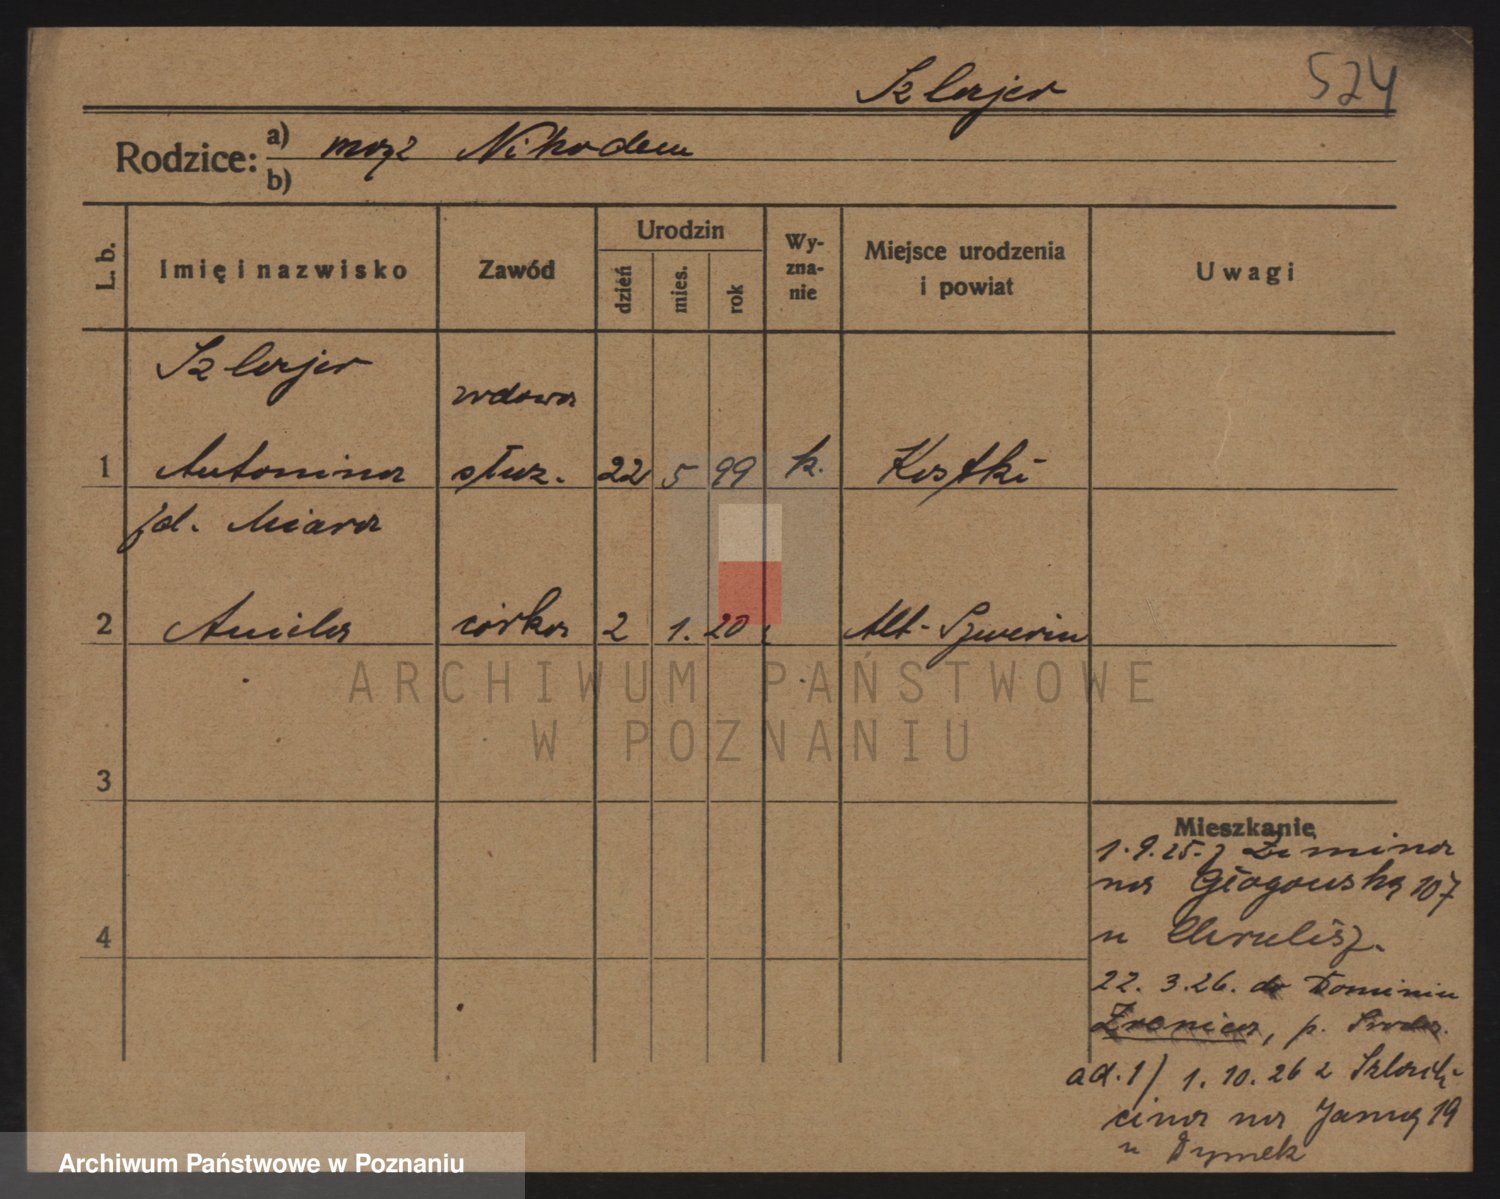 Szlajer 524
Rodzice: a) mąż Nikodem
b)
L. b. Imię i nazwisko Zawód Urodzin dzień mies. rok Wy-zna-nie Miejsce urodzenia i powiat Uwagi
Szlajer wdowa
1 Antonina służ. 22 5 99 k. Kostki
zd. Miara
2 Aniela córka 2 1. 20 Alt-Szwerin
ARCHIWUM PAŃSTWOWE
W POZNANIU
3
Mieszkanie
1.9.25. z Zimina
na Głogowską 107
4
u
22. 3.26. do Dominiu
p. Środa.
ad.1) 1. 10. 26 z
na Jasną 19
u Dymek
Archiwum Państwowe w Poznaniu